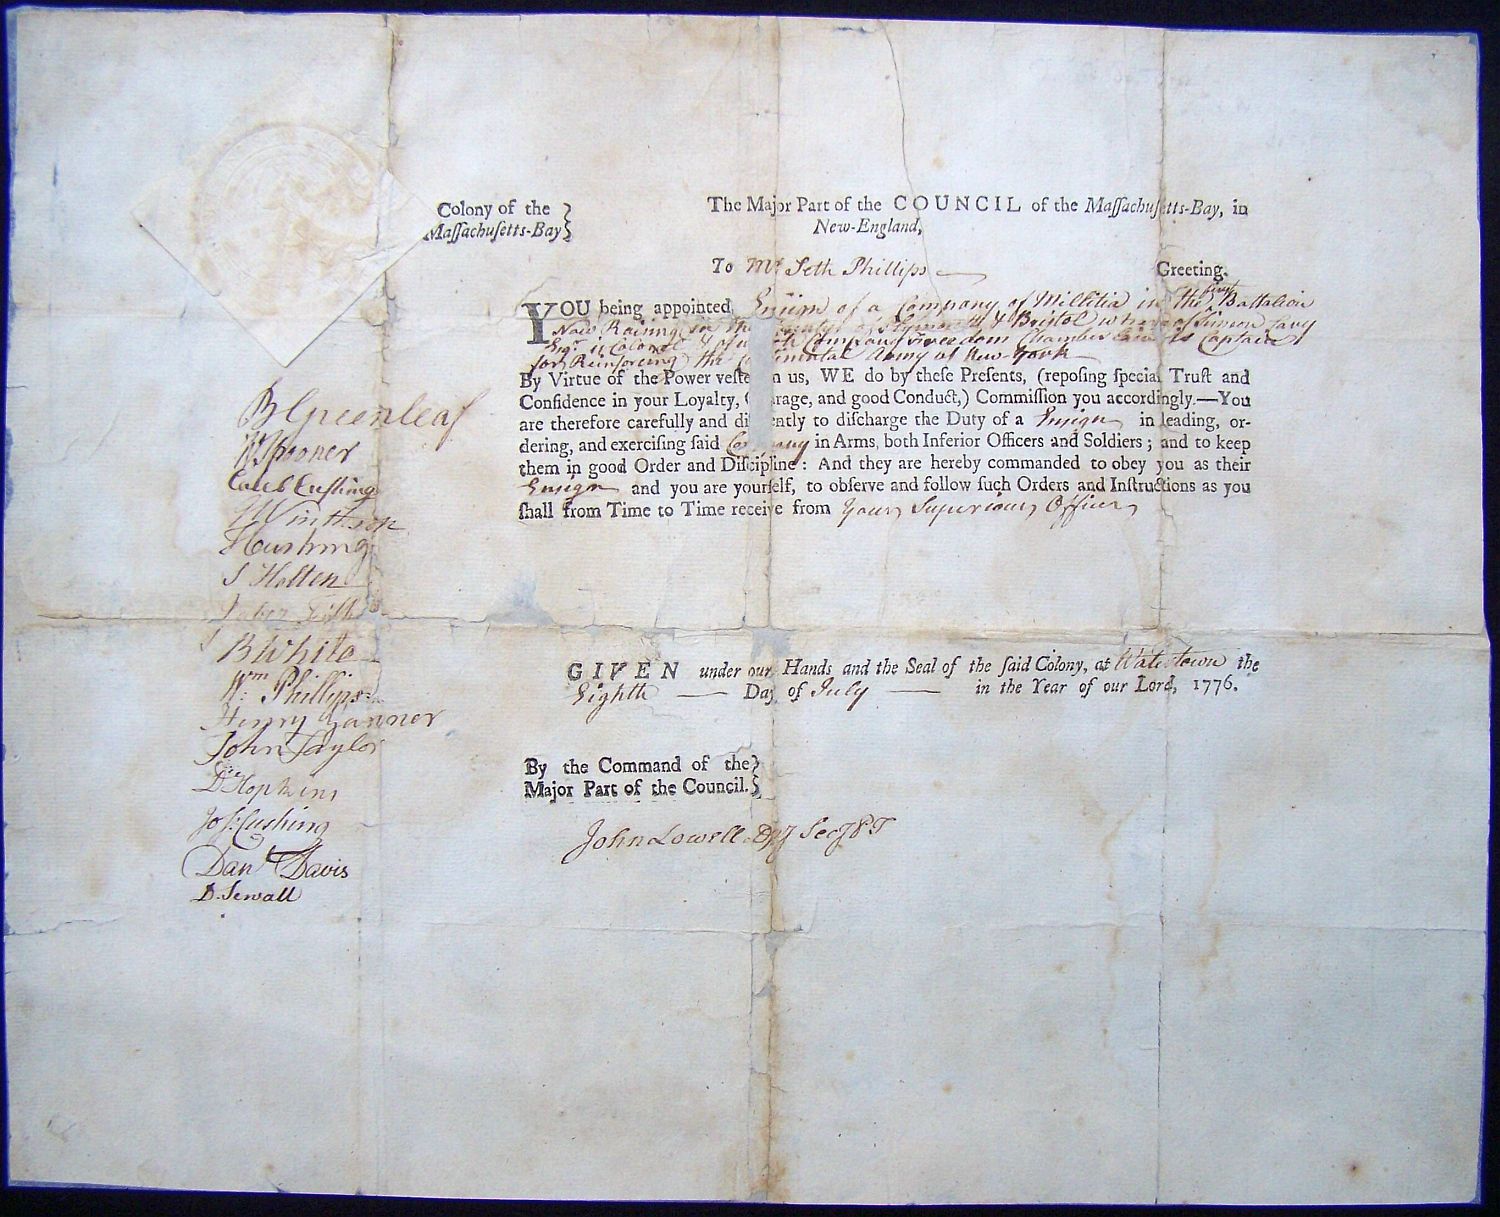 Colony of the
Maſſachuſetts-Bay
The Major Part of the COUNCIL of the Maſſachuſetts-Bay, in
New-England,
To Mr Seth Phillips Greeting.
YOU being appointed Ensign of a Company of Millitia in the Battalion
Now Raising in the of Plymouth & Bristol whereof Simeon Cary
Esqr is Colonel & of Company Freedom Chamberlain is Captain
for Reinforcing the Army at New-York
By Virtue of the Power veſte n us, WE do by theſe Preſents, (repoſing ſpecial Truſt and
Confidence in your Loyalty, C rage, and good Conduct,) Commiſſion you accordingly.—You
are therefore carefully and di ently to diſcharge the Duty of a Ensign in leading, or-
dering, and exerciſing ſaid Company in Arms, both Inferior Officers and Soldiers; and to keep
them in good Order and Diſcipline: And they are hereby commanded to obey you as their
Ensign and you are yourſelf, to obſerve and follow ſuch Orders and Inſtructions as you
ſhall from Time to Time receive from your Superiour Officers
B Greenleaf
W Spooner
Caleb Cushing
J Winthrop
T Cushing
S Holten
Jabez Fisher
B White
Wm Phillips
Henry Gardner
John Taylor
D Hopkins
Jos: Cushing
Danl Davis
D. Sewall
GIVEN under our Hands and the Seal of the ſaid Colony, at Watertown the
Eighth Day of July in the Year of our Lord, 1776.
By the Command of the
Major Part of the Council.
John Lowell Dpy Secy P T